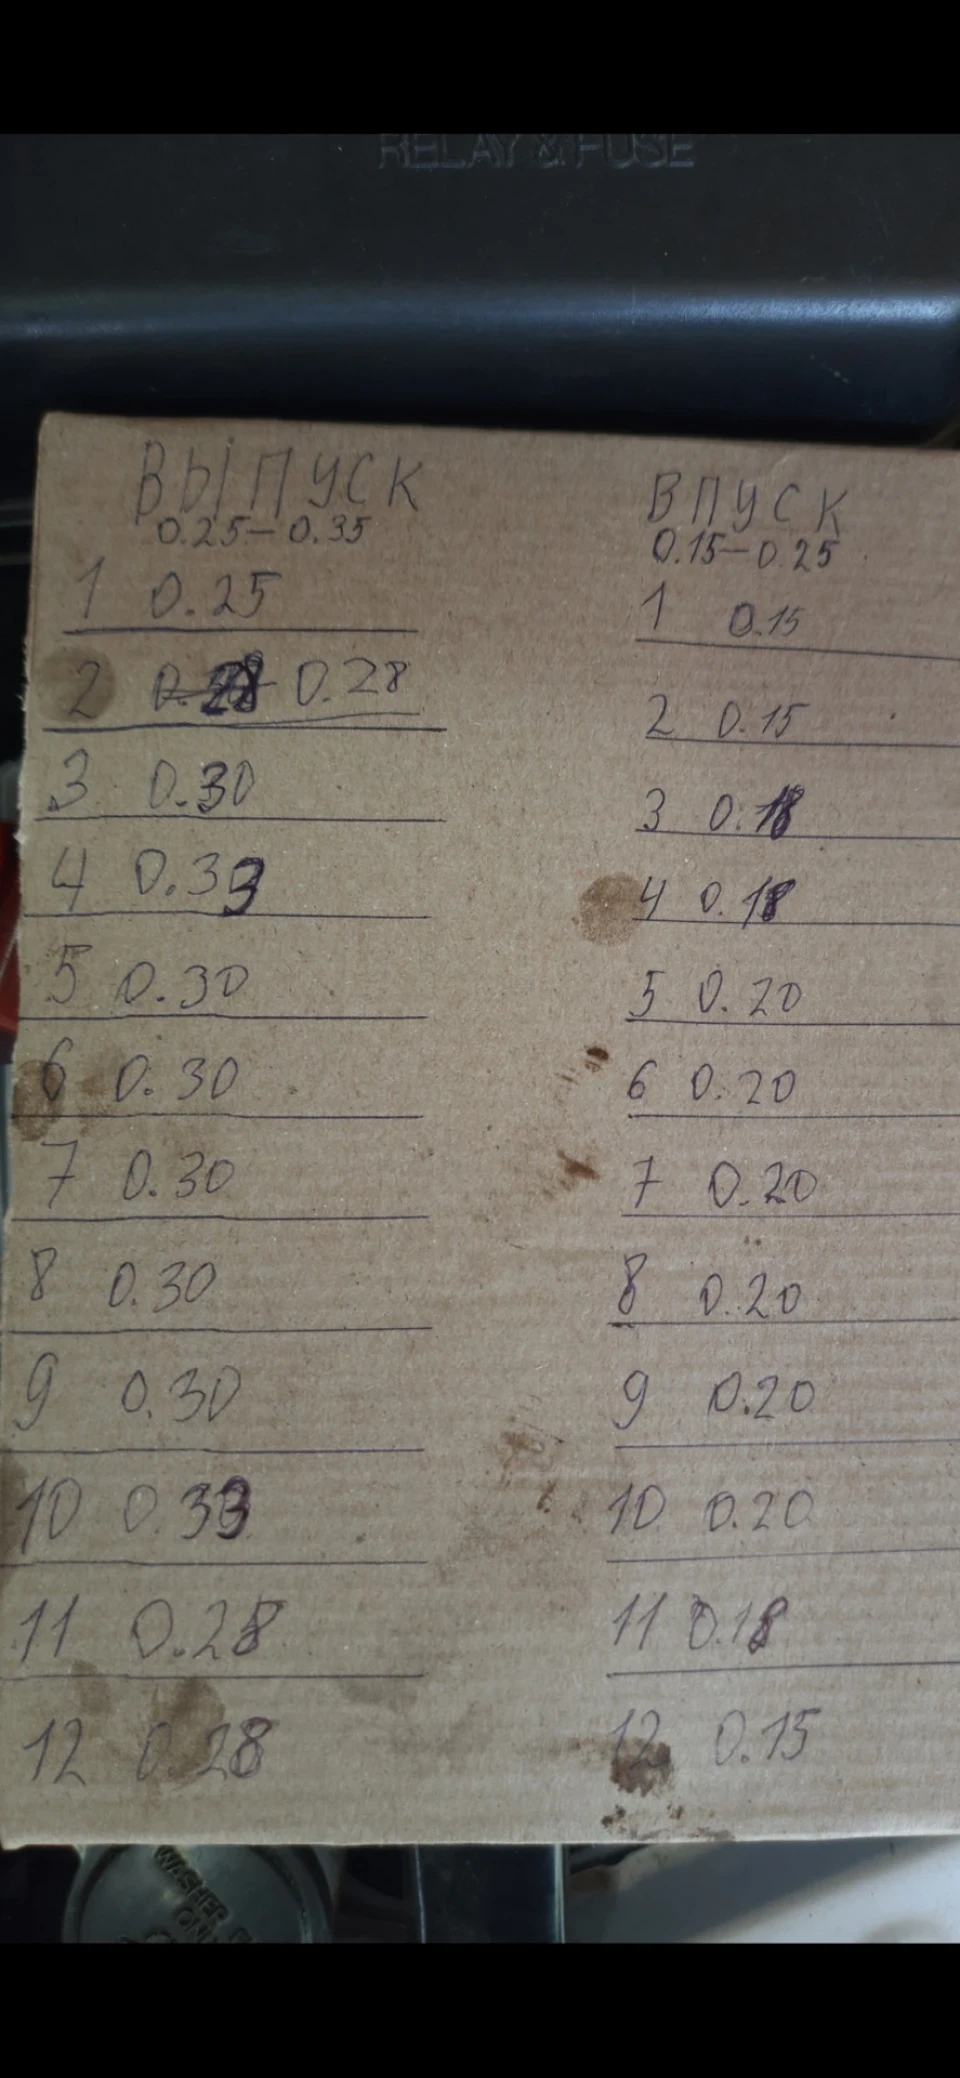 RELAY & FUSE
ВЫПУСК
0.25-0.35
1 0.25
2 0.28 0.28
3 0.30
4 0.33
5 0.30
6 0.30
7 0.30
8 0.30
9 0.30
10 0.33
11 0.28
12 0.28
ВПУСК
0.15-0.25
1 0.15
2 0.15
3 0.18
4 0.18
5 0.20
6 0.20
7 0.20
8 0.20
9 0.20
10 0.20
11 0.18
12 0.15
WASHER
ONLY